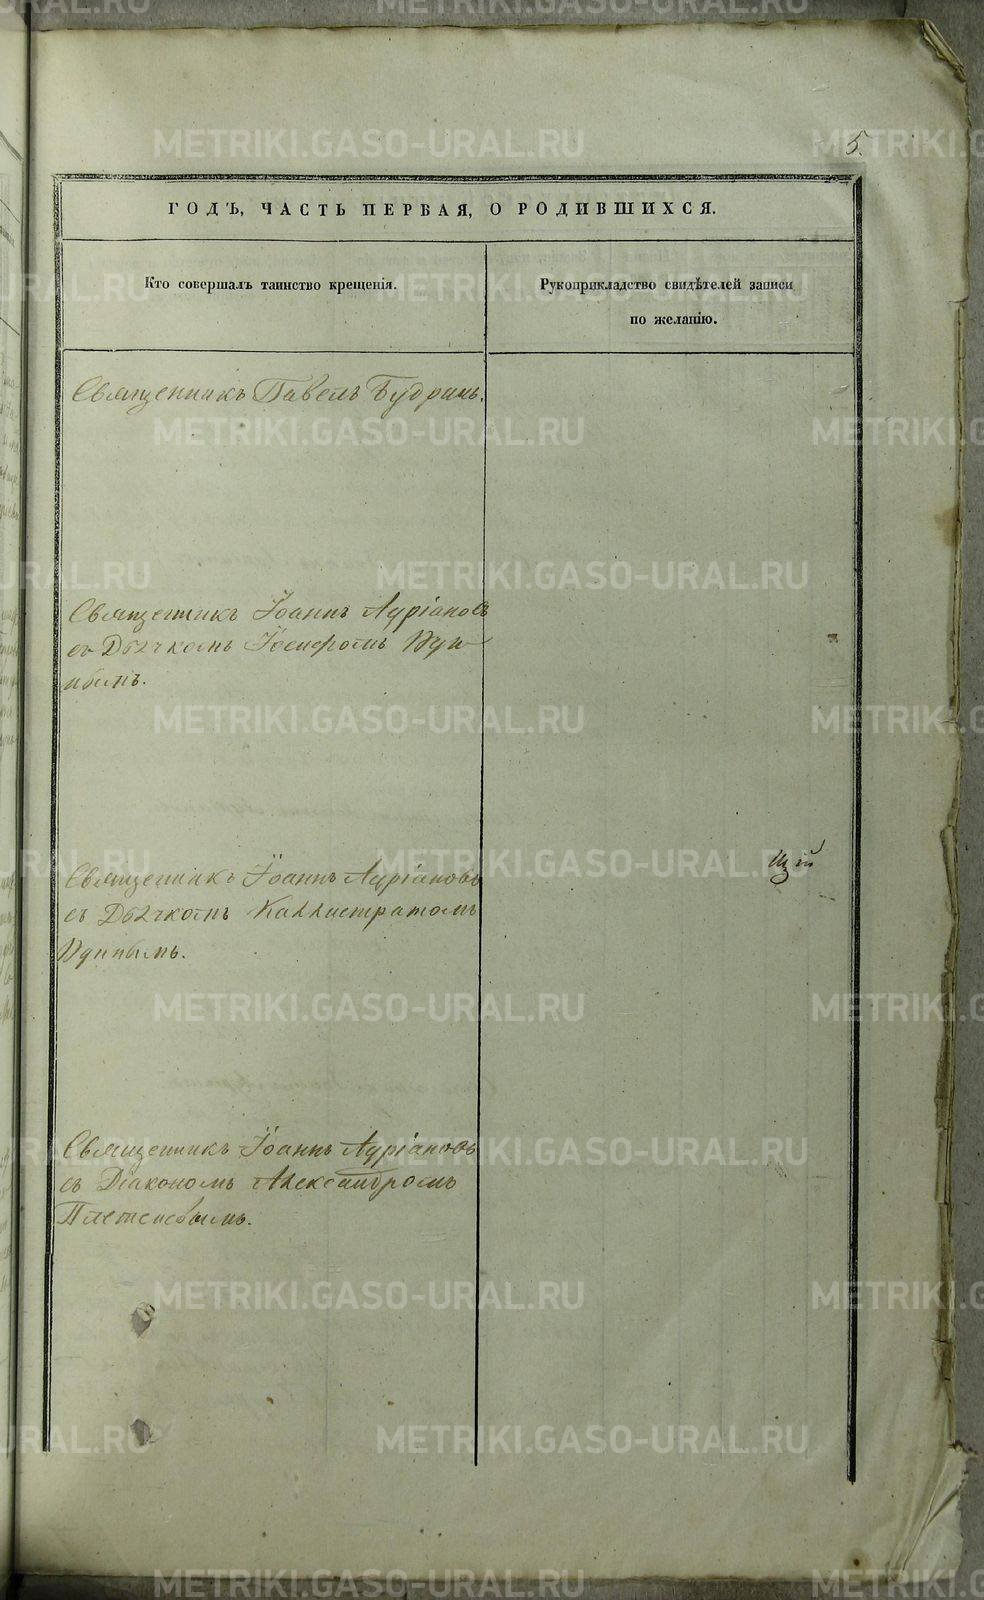 5.
ГОДЪ, ЧАСТЬ ПЕРВАЯ, О РОДИВШИХСЯ.
Кто совершалъ таинство крещенія.
Рукоприкладство свидѣтелей записи
по желанію.
Священникъ Павелъ Будринъ.
Священникъ Іоаннъ Ауріановъ
съ Дьячкомъ Іосифомъ
Священникъ Іоаннъ Ауріановъ
съ Дьячкомъ Каллистратомъ
Священникъ Іоаннъ Ауріановъ
съ Діакономъ Александромъ
Плетеневымъ.
METRIKI.GASO-URAL.RU